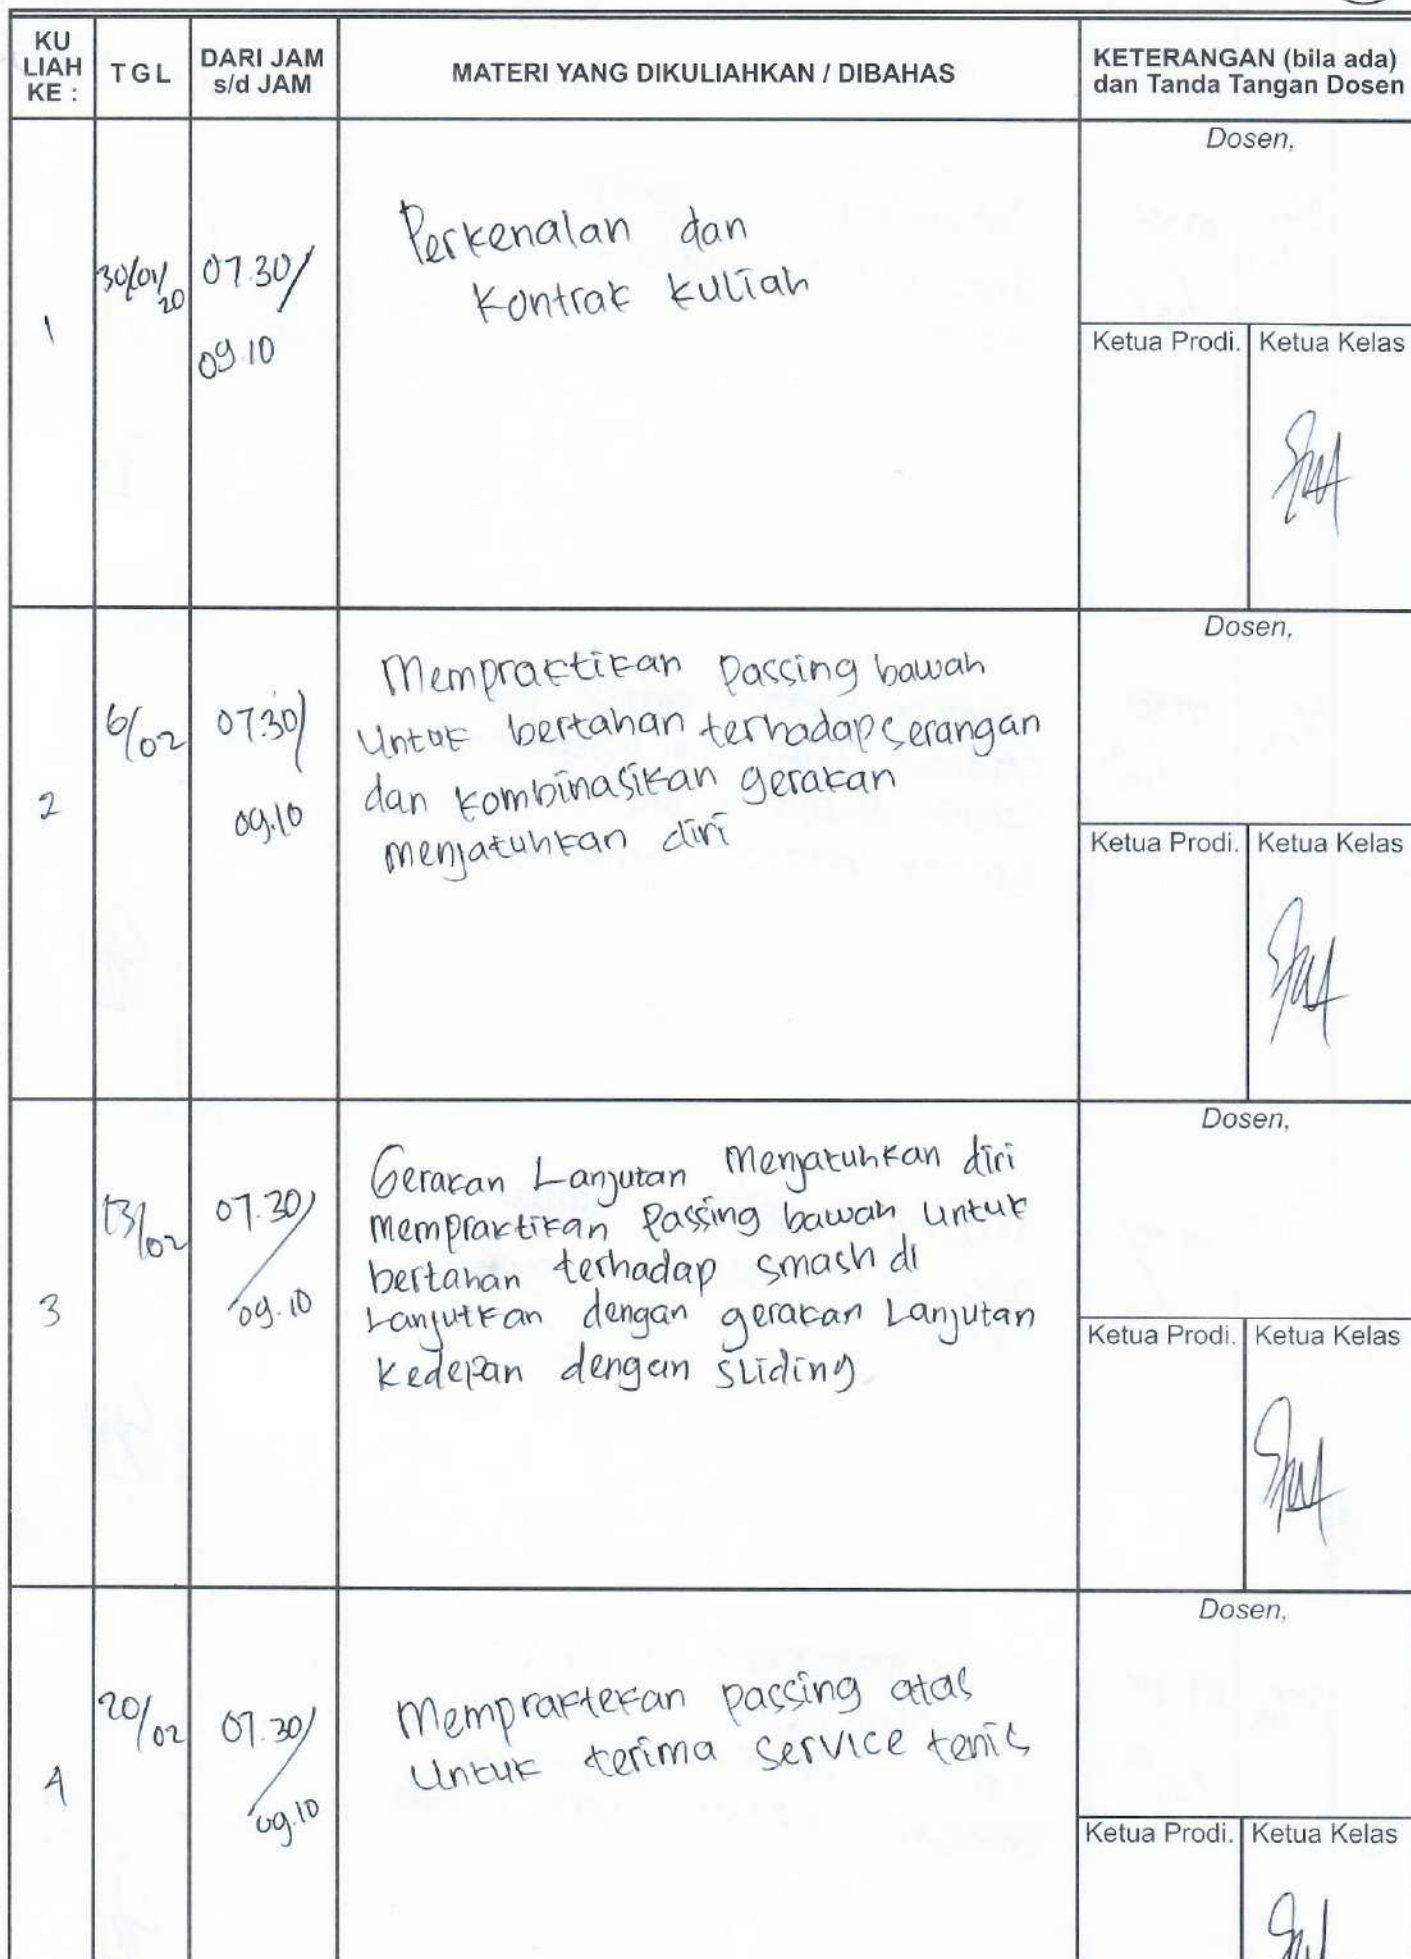 KU LIAH KE :
TGL
DARI JAM s/d JAM
MATERI YANG DIKULIAHKAN / DIBAHAS
KETERANGAN (bila ada) dan Tanda Tangan Dosen
1
30/01/20
07.30/
09.10
Perkenalan dan
Kontrak kuliah
Dosen,
Ketua Prodi.
Ketua Kelas
2
6/02
07.30/
09.10
Mempraktikan passing bawah
Untuk bertahan terhadap serangan
dan kombinasikan gerakan
menjatuhkan diri
Dosen,
Ketua Prodi.
Ketua Kelas
3
13/02
07.30/
09.10
Gerakan Lanjutan Menjatuhkan diri
mempraktikan Passing bawah untuk
bertahan terhadap smash di
Lanjutkan dengan gerakan Lanjutan
kedepan dengan sliding
Dosen,
Ketua Prodi.
Ketua Kelas
4
20/02
07.30/
09.10
Mempraktekan passing atas
Untuk terima service tenis
Dosen,
Ketua Prodi.
Ketua Kelas